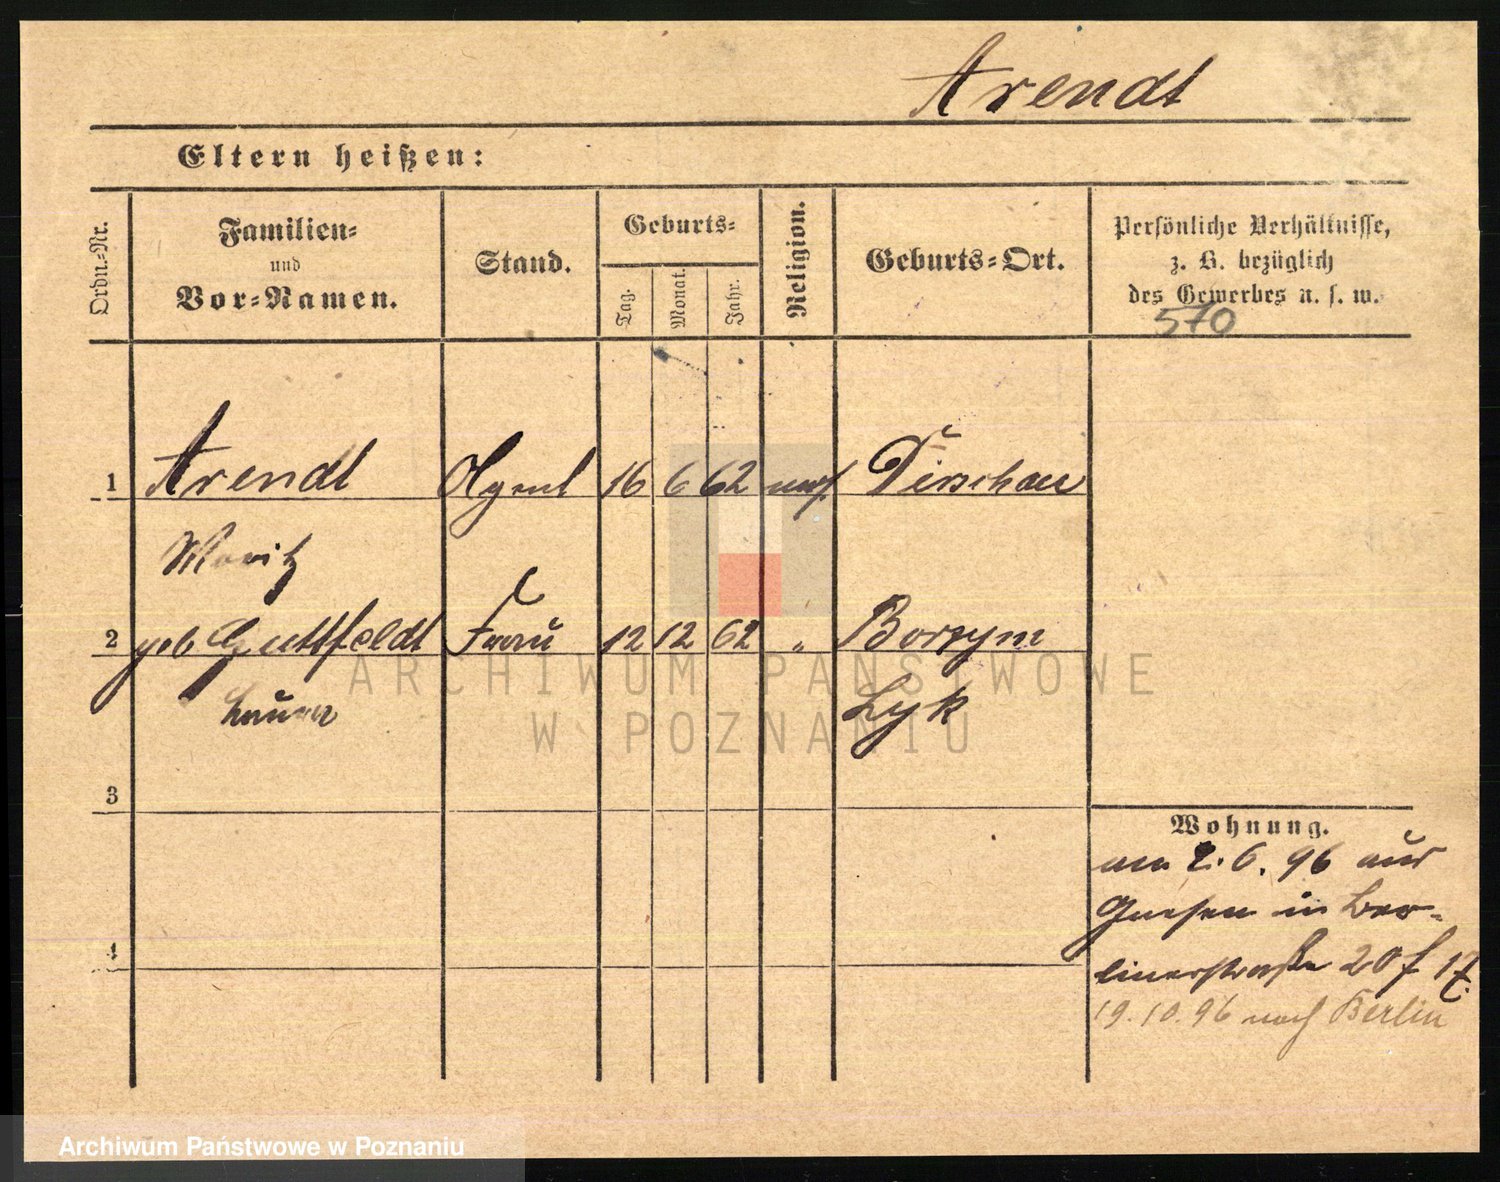 Arendt
Eltern heißen:
Ordn.-Nr.
Familien-
und
Vor-Namen.
Stand.
Geburts-
Tag.
Monat.
Jahr.
Religion.
Geburts-Ort.
Persönliche Verhältnisse,
z. B. bezüglich
des Gewerbes u. s. w.
570
1 Arendt Agent 16 6 62 mos. Dirschau
Moritz
2 geb Guttfeldt Frau 12 12 62 " Borzym
Laura Lyk
ARCHIWUM PAŃSTWOWE
W POZNANIU
3
Wohnung.
am 2. 6. 96 aus
Gnesen in Ber-
linerstraße 20 f 17.
19. 10. 96 nach Berlin
4
Archiwum Państwowe w Poznaniu